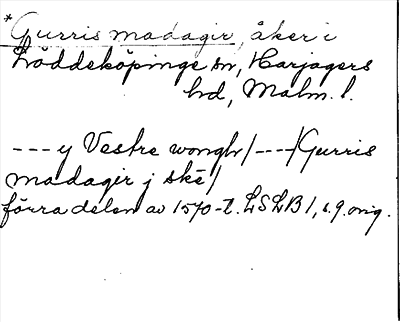 *Gurris madagir, åker i
Löddeköpinge sn, Harjagers
hd, Malm. l.
--- y Vestre wongh/ ---/Gurris
madagir j ske/
förra delen av 1570-t. LSLB 1, s. 9. orig.